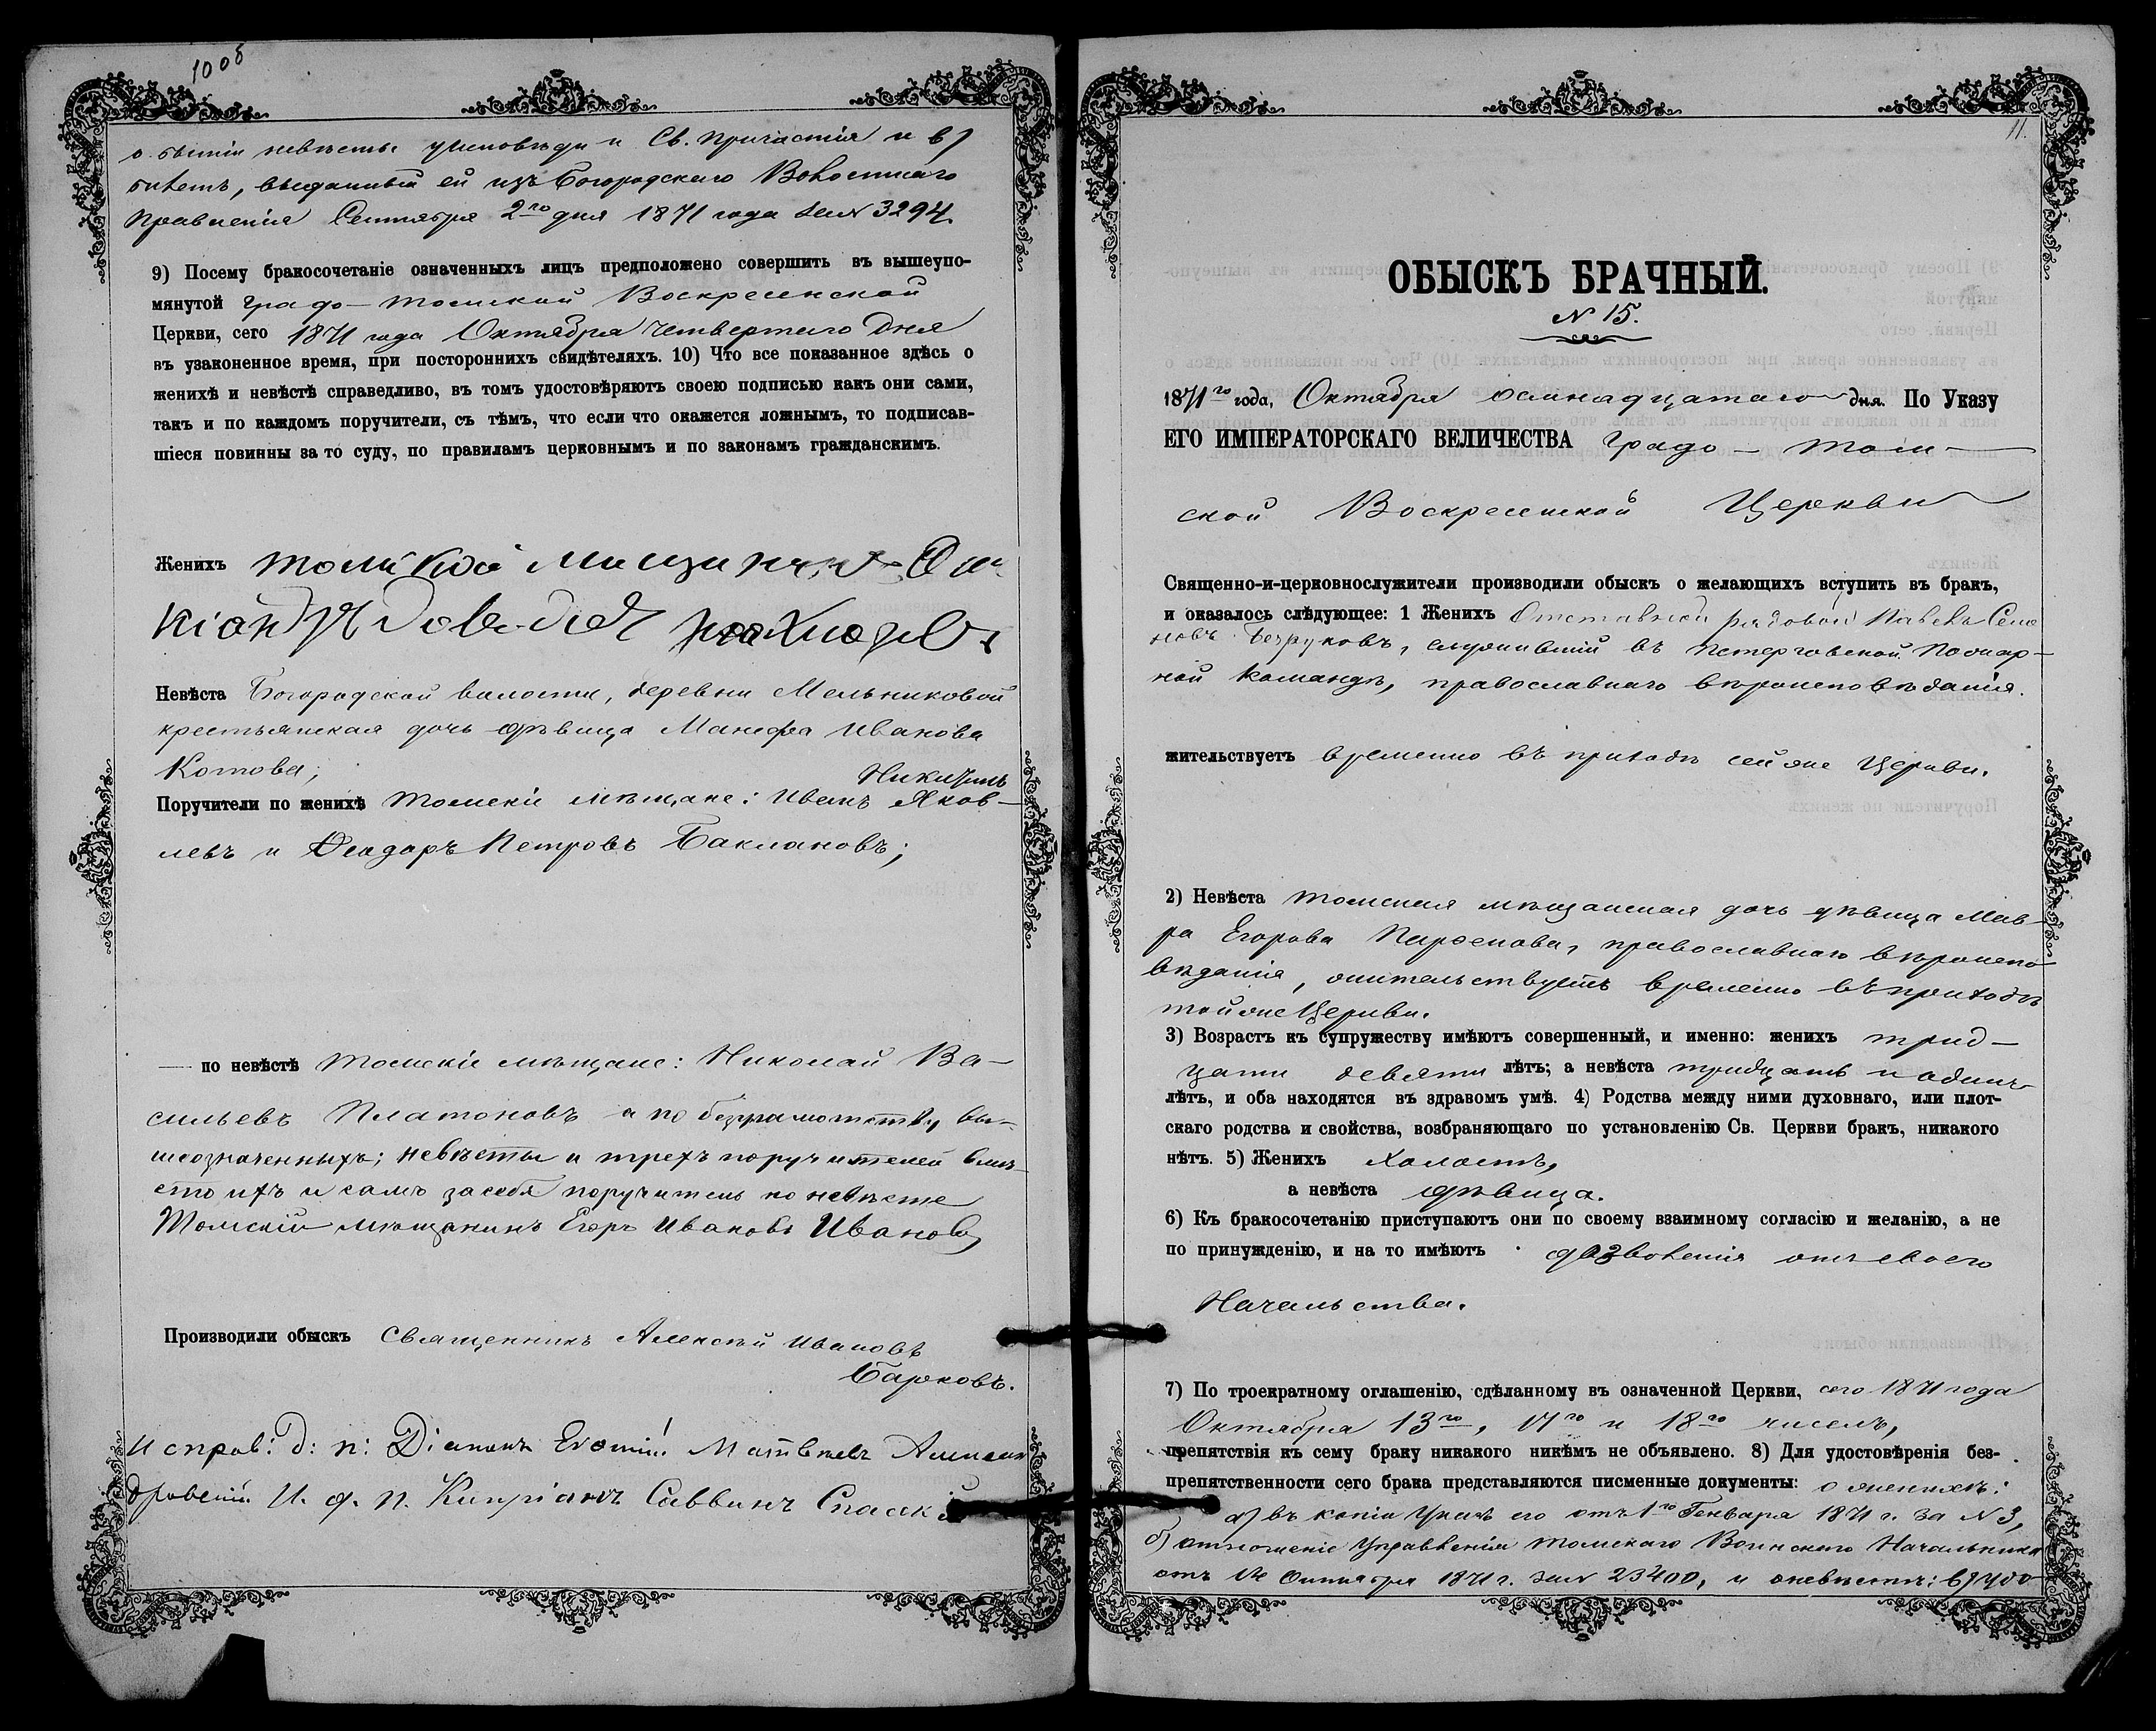 100б
о бытіи невѣсты у исповѣди и Св. Причастія и в)
билетъ, выданный ей изъ Богородскаго Волостнаго
Правленія Сентября 2го дня 1871 года за № 3294.
9) Посему бракосочетаніе означенныхъ лицъ предположено совершить въ вышеупо-
мянутой Градо-Томской Воскресенской
Церкви, сего 1871 года Октября Четвертаго дня
въ узаконенное время, при постороннихъ свидѣтеляхъ. 10) Что все показанное здѣсь о
женихѣ и невѣстѣ справедливо, въ томъ удостовѣряютъ своею подписью какъ они сами,
такъ и по каждомъ поручители, съ тѣмъ, что если что окажется ложнымъ, то подписав-
шіеся повинны за то суду, по правиламъ церковнымъ и по законамъ гражданскимъ.
Женихъ томской
Невѣста Богородской волости, деревни Мельниковой
крестьянская дочь дѣвица Манефа Иванова
Котова;
Никитинъ
Поручители по женихѣ Томскіе мѣщане: Иванъ Яков-
левъ и Ѳеодоръ Петровъ Баклановъ;
— по невѣстѣ Томскіе мѣщане: Николай Ва-
сильевъ Платоновъ а по безграмотству вы-
шеозначенныхъ; невѣсты и трехъ поручителей вмѣ-
сто ихъ и самъ за себя поручитель по невѣсте
Томскій мѣщанинъ Егоръ Ивановъ Ивановъ
Производили обыскъ Священникъ Алексѣй Ивановъ
Барковъ.
Исправ: д: п: Діаконъ Матвѣевъ Алексан
дровскій. И. д. п. Кипріанъ Саввинъ Спасскій
11.
ОБЫСКЪ БРАЧНЫЙ.
№ 15.
1871го года, Октября осмнадцатаго дня. По Указу
ЕГО ИМПЕРАТОРСКАГО ВЕЛИЧЕСТВА Градо-Том-
ской Воскресенской Церкви
Священно-и-церковнослужители производили обыскъ о желающихъ вступить въ бракъ,
и оказалось слѣдующее: 1 Женихъ Отставной рядовой Павелъ Семе
новъ Безруковъ, служившій въ Петергофской Пожар-
ной командѣ, православнаго вѣроисповѣданія.
жительствуетъ временно въ приходѣ сей же Церкви.
2) Невѣста Томская мѣщанская дочь дѣвица Мав-
ра Егорова Парѳенова, православнаго вѣроиспо-
вѣданія, жительствуетъ временно въ приходѣ
той же Церкви.
3) Возрастъ къ супружеству имѣютъ совершенный, и именно: женихъ трид-
цати девяти лѣтъ; а невѣста тридцать и одинъ
лѣтъ, и оба находятся въ здравомъ умѣ. 4) Родства между ними духовнаго, или плот-
скаго родства и свойства, возбраняющаго по установленію Св. Церкви бракъ, никакого
нѣтъ. 5) Женихъ Холостъ,
а невѣста дѣвица.
6) Къ бракосочетанію приступаютъ они по своему взаимному согласію и желанію, а не
по принужденію, и на то имѣютъ дозволенія отъ своего
Начальства.
7) По троекратному оглашенію, сдѣланному въ означенной Церкви, сего 1871 года
Октября 13го, 17го и 18го чиселъ,
препятствія къ сему браку никакого никѣмъ не объявлено. 8) Для удостовѣренія без-
препятственности сего брака представляются писменные документы: о женихѣ:
а) въ копіи Указъ его отъ 1го Генваря 1871 г. за № 3,
б) отношеніе Управленія Томскаго Воинскаго Начальника
отъ Октября 1871 г. за № 23400, и о невѣстѣ: в) удо-